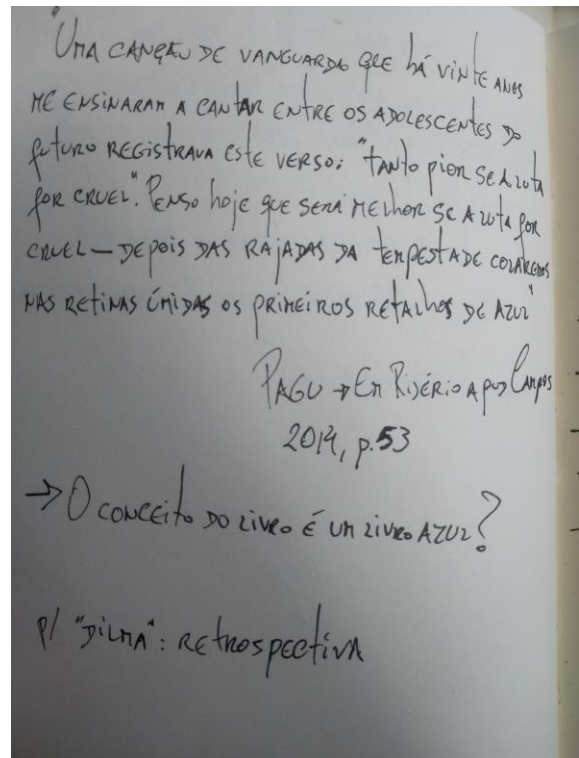 "Uma canção de vanguarda que há vinte anos
me ensinaram a cantar entre os adolescentes do
futuro registrava este verso: "tanto pior se a luta
for cruel". Penso hoje que será melhor se a luta for
cruel — depois das rajadas da tempestade colaremos
nas retinas úmidas os primeiros retalhos de azul"
Pagu → Em Risério apud Campos
2014, p.53
→ O conceito do livro é um livro azul?
p/ "Dilma": retrospectiva